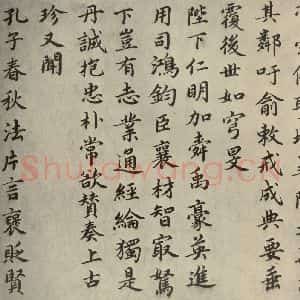 其鄰吁俞敕戒成典要垂
覆後世如穹旻
陛下仁明加舜禹豪英進
用司鴻鈞臣襄材智最駑
下豈有志業通經綸獨是
丹誠抱忠朴常欲贊奏上古
珍又聞
孔子春秋法片言褒貶賢